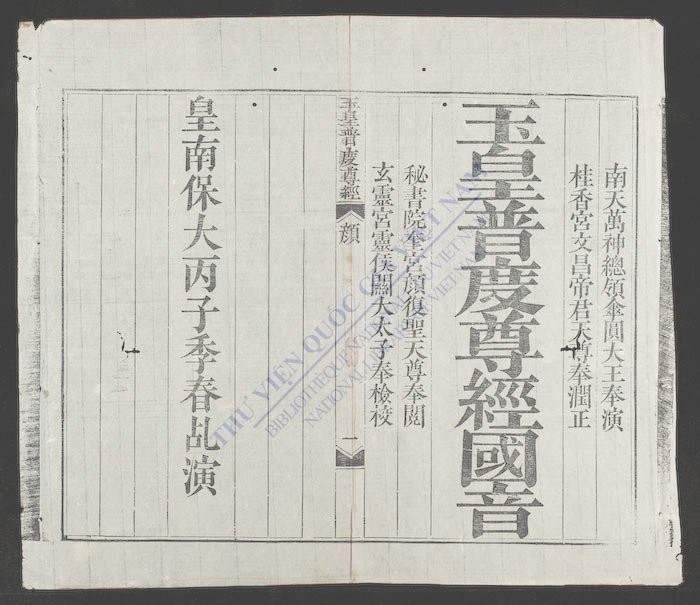 南天萬神總領傘圓大王奉演
桂香宮文昌帝君天尊奉潤正
玉皇普度尊經國音
秘書院奎宮顔復聖天尊奉閱
玄靈宮靈侯關大太子奉檢校
玉皇普度尊經
顔
一
皇南保大丙子季春乩演
THƯ VIỆN QUỐC GIA VIỆT NAM
BIBLIOTHEQUE NATIONALE DU VIETNAM
NATIONAL LIBRARY OF VIETNAM